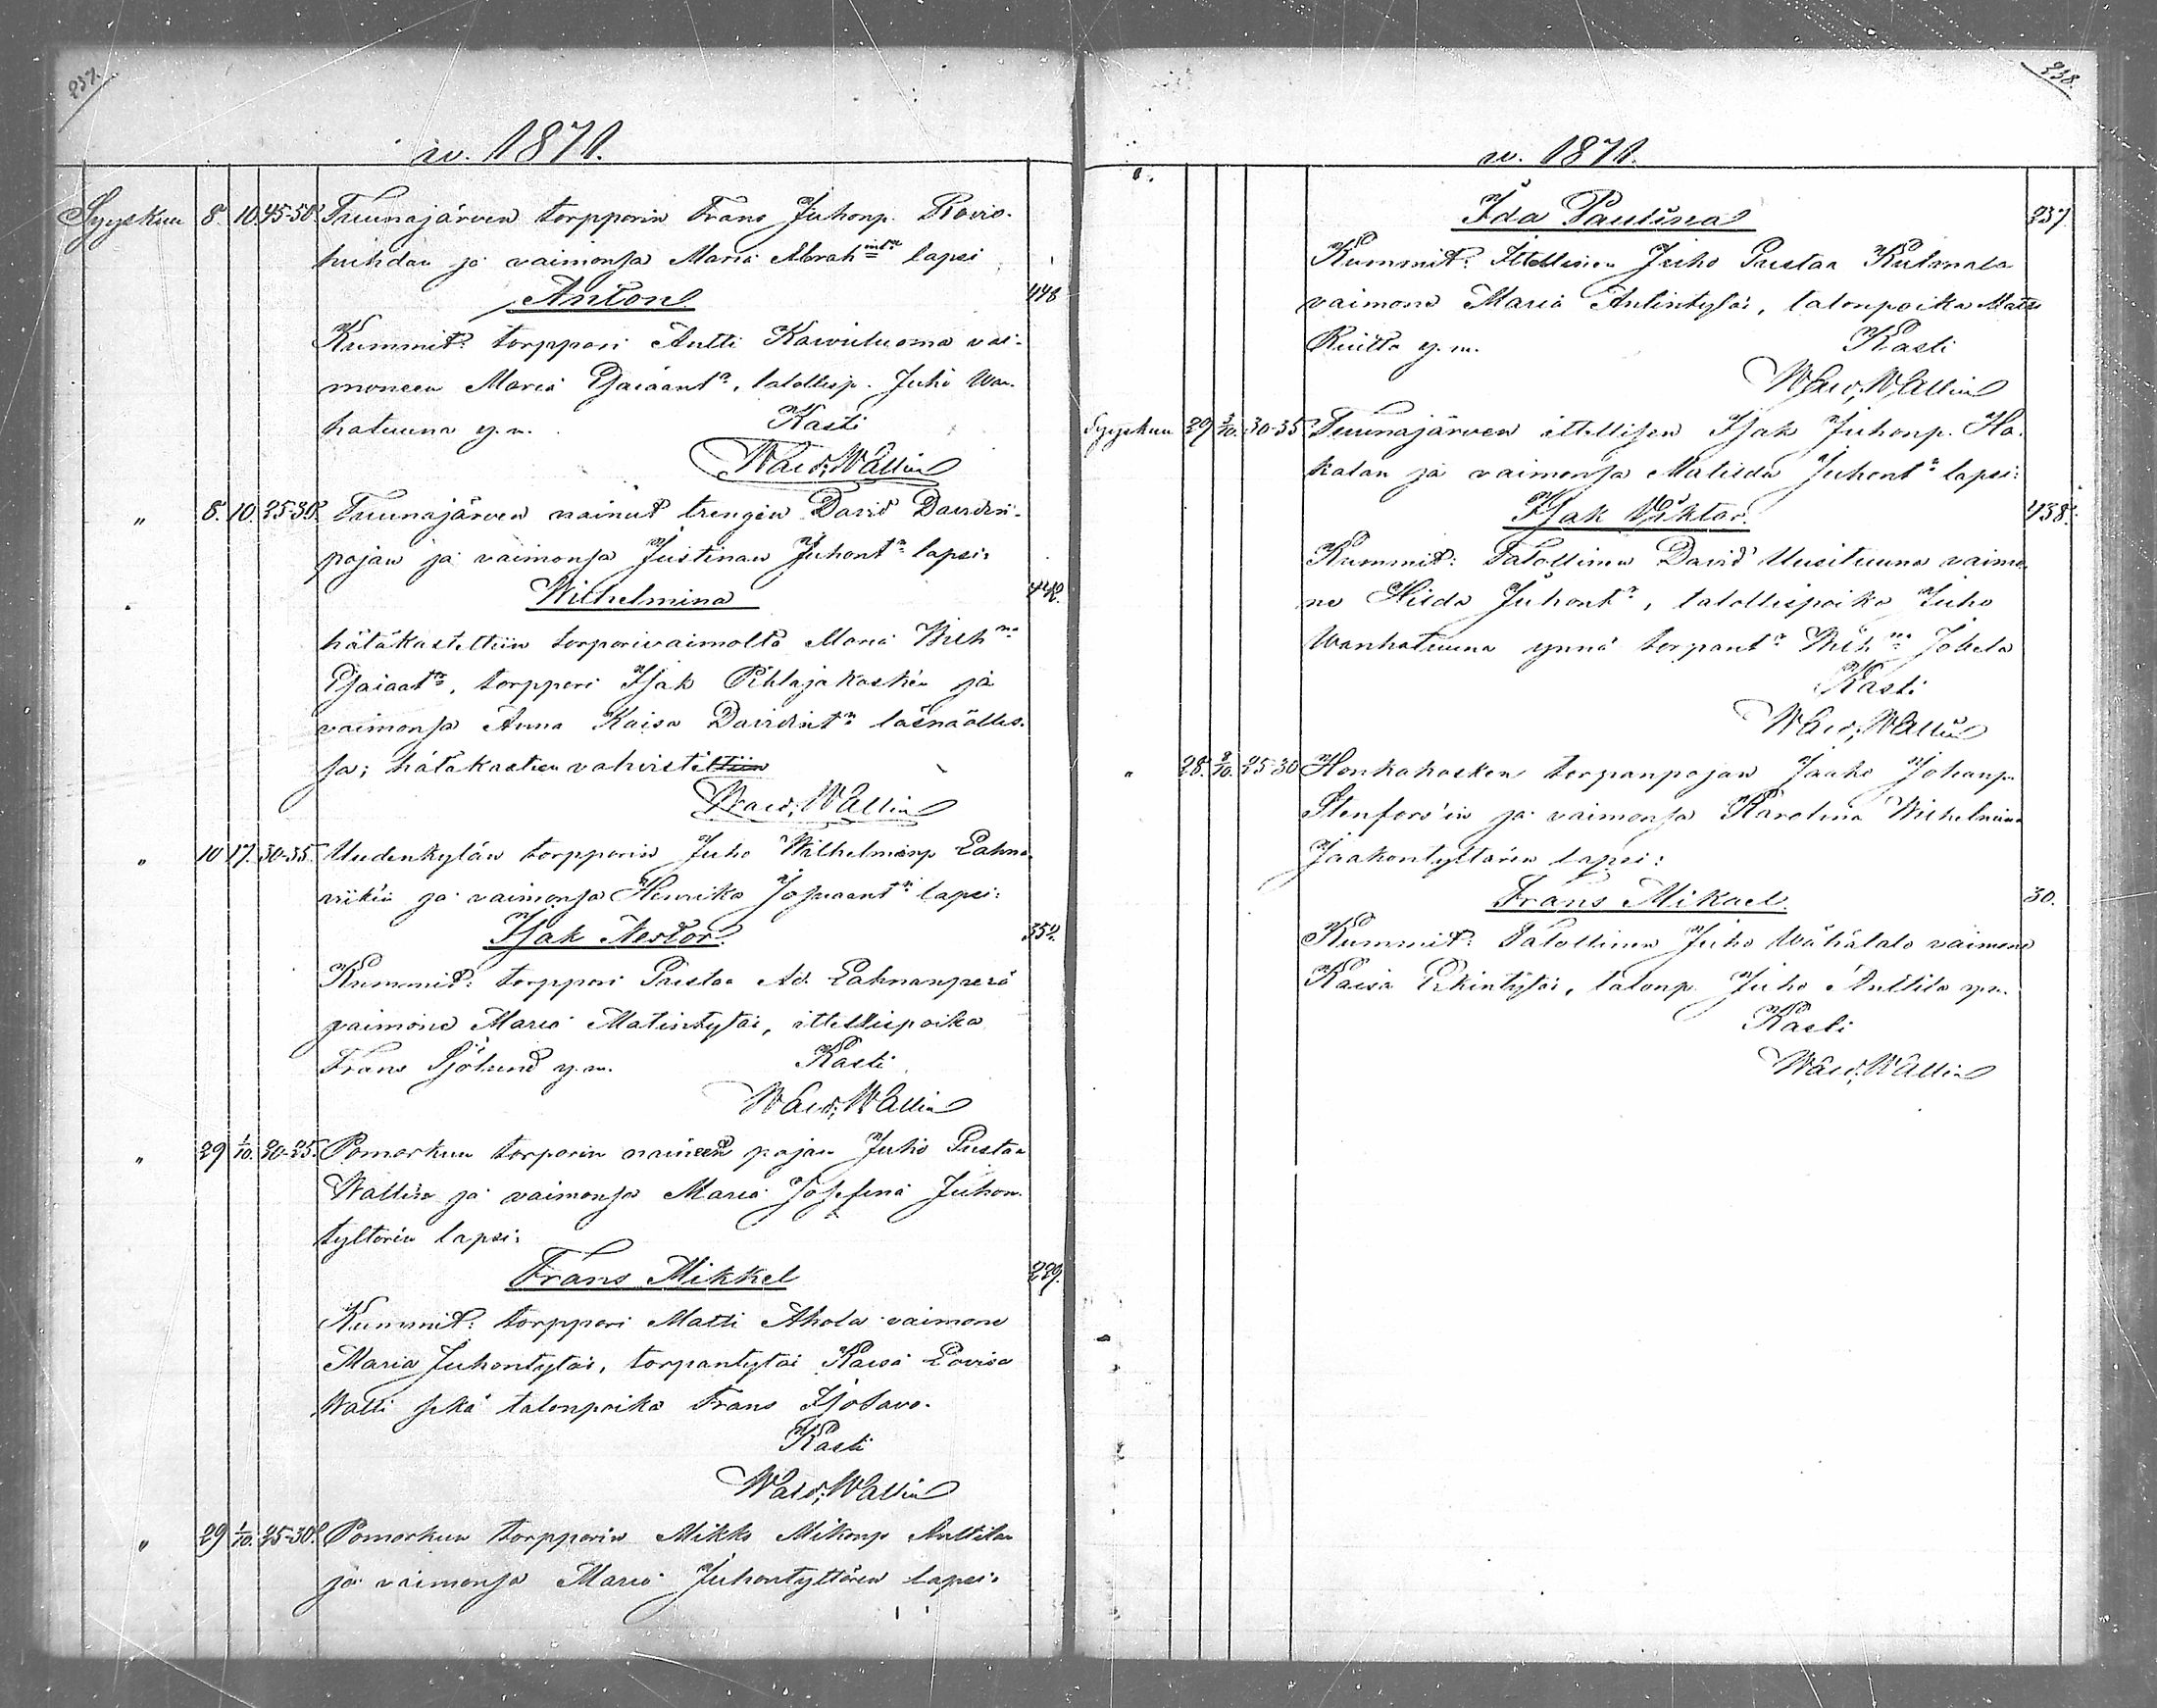 237.
w. 1871.
Syyskuu 8. 10. 45-50. Tuunajärven torpparin Frans Juhonp. Rovio-
huhdan ja vaimonsa Maria Abrah lapsi
Anton 448
Kummit: torppari Antti Kawiuluoma vai-
moneen Maria Esaiaant:, talollisp. Juho Wan-
hatuuna y. m. Kasti
Wald. Wallin
" 8. 10. 25-30. Tuunajärven nainut trengin David Davidin-
pojan ja vaimonsa Justinan Juhont: lapsi:
Wilhelmina 442.
hätäkastettiin torparivaimolta Maria Wilh:
Esaiaat:, torppari Isak Pihlajakosken ja
vaimonsa Anna Kaisa Davidint: läsnäolles-
sa; hätäkasteen vahvistettiin
Wald. Wallin
" 10 17. 30-35. Uudenkylän torpparin Juho Wilhelminp Lahna-
ja vaimonsa Henrika Josuaant: lapsi:
Isak Nestor. 352.
Kummit: torppari Kustaa Ad. Lahnanperä
vaimone Maria Matintytär, itellispoika
Frans Sjölund y. m. Kasti
Wald. Wallin
" 29 1/10. 20-25. Pomarkun torparin naineen pojan Juho Kustaa
Wallin ja vaimonsa Maria Josefina Juhon-
tyttären lapsi:
Frans Mikkel 229.
Kummit: torppari Matti Ahola vaimone
Maria Juhontytär, torpantytär Kaisa Lovisa
Walli sekä talonpoika Frans Isosavo.
Kasti
Wald. Wallin
" 29 1/10. 25-30. Pomarkun torpparin Mikko Mikonp Anttilan
ja vaimonsa Maria Juhontyttären lapsi:
238.
w. 1871.
Ida Paulina 237
Kummit: Itellinen Juho Kustaa Kulmala
vaimone Maria Antintytär, talonpoika Matti
Ruitta y. m. Kasti
Wald. Wallin
Syyskuu 29 /10. 30-35 Tuunajärven itellisen Isak Juhonp. Ha-
kalan ja vaimonsa Matilda Juhont: lapsi:
Isak Wiktor. 438.
Kummit: Talollinen David Uusituuna vaimo-
ne Hilda Juhont:, talollispoika Juho
Wanhatuuna ynnä torpant: Wilh: Jokela
Kasti
Wald. Wallin
" 28. /10. 25-30 Honkakosken torpanpojan Jaako Johanp.
Stenfors'in ja vaimonsa Karolina Wilhelmina
Jaakontyttären lapsi:
Frans Mikael. 30.
Kummit: Talollinen Juho Wähätalo vaimone
Kaisa Erkintytär, talonp. Juho Anttila ym.
Kasti
Wald. Wallin